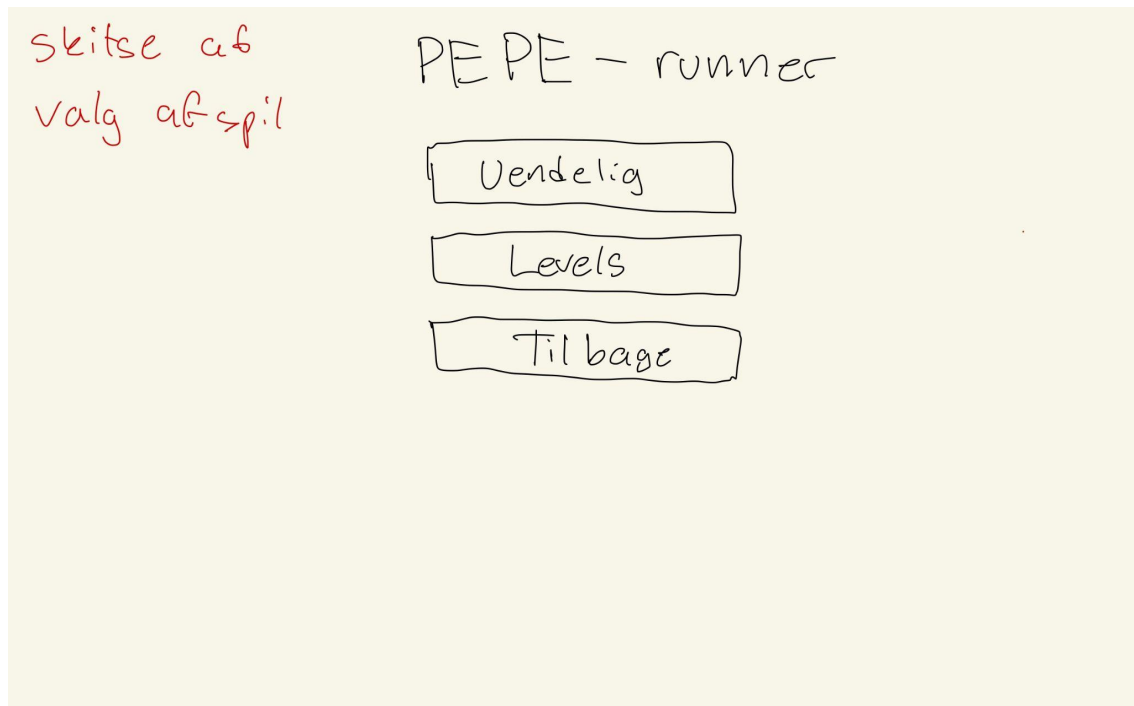 skitse af
valg af spil
PEPE - runner
Uendelig
Levels
Tilbage